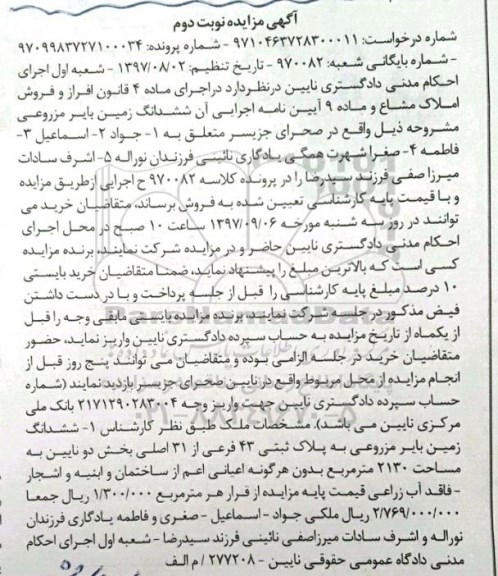 آگهی مزایده نوبت دوم
شماره درخواست: ۹۷۱۰۴۶۳۷۲۸۳۰۰۰۱۱ - شماره پرونده: ۹۷۰۹۹۸۳۷۲۷۱۰۰۰۳۴
- شماره بایگانی شعبه: ۹۷۰۰۸۲ - تاریخ تنظیم: ۱۳۹۷/۰۸/۰۲ - شعبه اول اجرای
احکام مدنی دادگستری نایین درنظردارد دراجرای ماده ۴ قانون افراز و فروش
املاک مشاع و ماده ۹ آیین نامه اجرایی آن ششدانگ زمین بایر مزروعی
مشروحه ذیل واقع در صحرای جزیسر متعلق به ۱- جواد ۲- اسماعیل ۳-
فاطمه ۴- صغرا شهرت همگی یادگاری نائینی فرزندان نوراله ۵- اشرف سادات
میرزا صفی فرزند سیدرضا را در پرونده کلاسه ۹۷۰۰۸۲ ح اجرایی ازطریق مزایده
و با قیمت پایه کارشناسی تعیین شده به فروش برساند، متقاضیان خرید می
توانند در روز سه شنبه مورخه ۱۳۹۷/۰۹/۰۶ ساعت ۱۰ صبح در محل اجرای
احکام مدنی دادگستری نایین حاضر و در مزایده شرکت نمایند، برنده مزایده
کسی است که بالاترین مبلغ را پیشنهاد نماید، ضمنا متقاضیان خرید بایستی
۱۰ درصد مبلغ پایه کارشناسی را قبل از جلسه پرداخت و با در دست داشتن
فیض مذکور در جلسه شرکت نمایند، برنده مزایده بایستی مابقی وجه را قبل
از یکماه از تاریخ مزایده به حساب سپرده دادگستری نایین واریز نماید، حضور
متقاضیان خرید در جلسه الزامی بوده و متقاضیان می توانند پنج روز قبل از
انجام مزایده از محل مربوط واقع در نایین صحرای جزیسر بازدید نمایند (شماره
حساب سپرده دادگستری نایین جهت واریز وجه ۲۱۷۱۲۹۰۲۸۳۰۰۴ بانک ملی
مرکزی نایین می باشد). مشخصات ملک طبق نظر کارشناس ۱- ششدانگ
زمین بایر مزروعی به پلاک ثبتی ۴۳ فرعی از ۳۱ اصلی بخش دو نایین به
مساحت ۲۱۳۰ مترمربع بدون هرگونه اعیانی اعم از ساختمان و ابنیه و اشجار
- فاقد آب زراعی قیمت پایه مزایده از قرار هر مترمربع ۱/۳۰۰/۰۰۰ ریال جمعا
۲/۷۶۹/۰۰۰/۰۰۰ ریال ملکی جواد - اسماعیل - صغری و فاطمه یادگاری فرزندان
نوراله و اشرف سادات میرزاصفی نائینی فرزند سیدرضا - شعبه اول اجرای احکام
مدنی دادگاه عمومی حقوقی نایین - ۲۷۷۲۰۸ / م الف